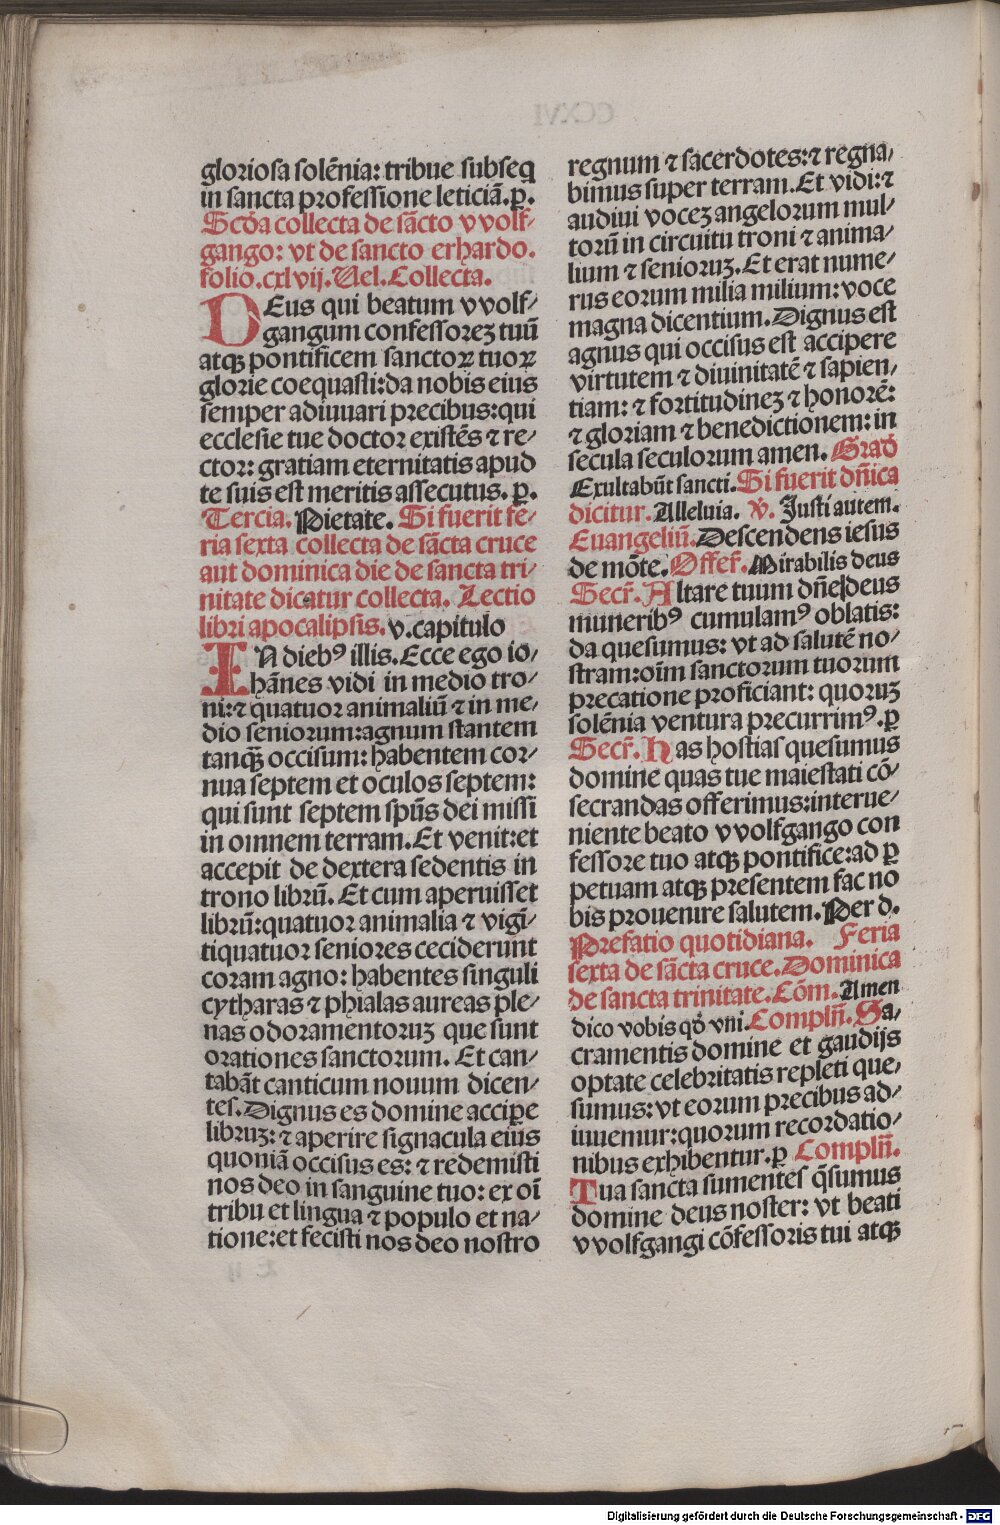 gloriosa solēnia: tribue subseq
in sancta professione leticiā.p̱.
Scḋa collecta de sācto vvolf-
gango: vt de sancto erhardo.
folio.cxlvij.Uel.Collecta.
DEus qui beatum vvolf-
gangum confessoreꝫ tuū
atqꝫ pontificem sanctoꝝ tuoꝝ
glorie coequasti:da nobis eius
semper adiuuari precibus:qui
ecclesie tue doctor existēs ⁊ re-
ctor: gratiam eternitatis apud
te suis est meritis assecutus. p̱.
Tercia. Pietate. Si fuerit fe-
ria sexta collecta de sācta cruce
aut dominica die de sancta tri-
nitate dicatur collecta. Lectio
libri apocalipsis. v.capitulo
IN diebꝰ illis. Ecce ego io-
hānes vidi in medio tro-
ni:⁊ quatuor animaliū ⁊ in me-
dio seniorum:agnum stantem
tanqꝫ̄ occisum: habentem cor-
nua septem et oculos septem:
qui sunt septem spūs dei missi
in omnem terram. Et venit:et
accepit de dextera sedentis in
trono librū. Et cum aperuisset
librū:quatuor animalia ⁊ vigī-
tiquatuor seniores ceciderunt
coram agno: habentes singuli
cytharas ⁊ phialas aureas ple-
nas odoramentoruꝫ que sunt
orationes sanctorum. Et can-
tabāt canticum nouum dicen-
tes. Dignus es domine accip̱e
libruꝫ: ⁊ aperire signacula eius
quoniā occisus es: ⁊ redemisti
nos deo in sanguine tuo: ex oī
tribu et lingua ⁊ populo et na-
tione:et fecisti nos deo nostro
regnum ⁊ sacerdotes:⁊ regna-
bimus super terram. Et vidi:⁊
audiui voceꝫ angelorum mul-
torū in circuitu troni ⁊ anima-
lium ⁊ senioruꝫ. Et erat nume-
rus eorum milia milium: voce
magna dicentium. Dignus est
agnus qui occisus est accipere
virtutem ⁊ diuinitatē ⁊ sapien-
tiam: ⁊ fortitudineꝫ ⁊ honorē:
⁊ gloriam ⁊ benedictionem: in
secula seculorum amen. Graḋ
Exultabūt sancti. Si fuerit dn̄ica
dicitur. Alleluia. v̇. Justi autem.
Euangeliū. Descendens iesus
de mōte. Offer̄. Mirabilis deus
Secr̄. Altare tuum dn̄e deus
muneribꝰ cumulamꝰ oblatis:
da quesumus: vt ad salutē no-
stram:oīm sanctorum tuorum
precatione proficiant: quoruꝫ
solēnia ventura precurrimꝰ.p̱
Secr̄. Has hostias quesumus
domine quas tue maiestati cō-
secrandas offerimus:interue-
niente beato vvolfgango con
fessore tuo atqꝫ pontifice:ad p̱
petuam atqꝫ presentem fac no
bis prouenire salutem. Per d.
Prefatio quotidiana. Feria
sexta de sācta cruce. Dominica
de sancta trinitate. Cōm. Amen
dico vobis qḋ vni. Compln̄. Sa-
cramentis domine et gaudijs
optate celebritatis repleti que-
sumus: vt eorum precibus ad-
iuuemur:quorum recordatio-
nibus exhibentur. p̱ Compln̄.
Tua sancta sumentes q̄sumus
domine deus noster: vt beati
vvolfgangi cōfessoris tui atqꝫ
Digitalisierung gefördert durch die Deutsche Forschungsgemeinschaft - DFG